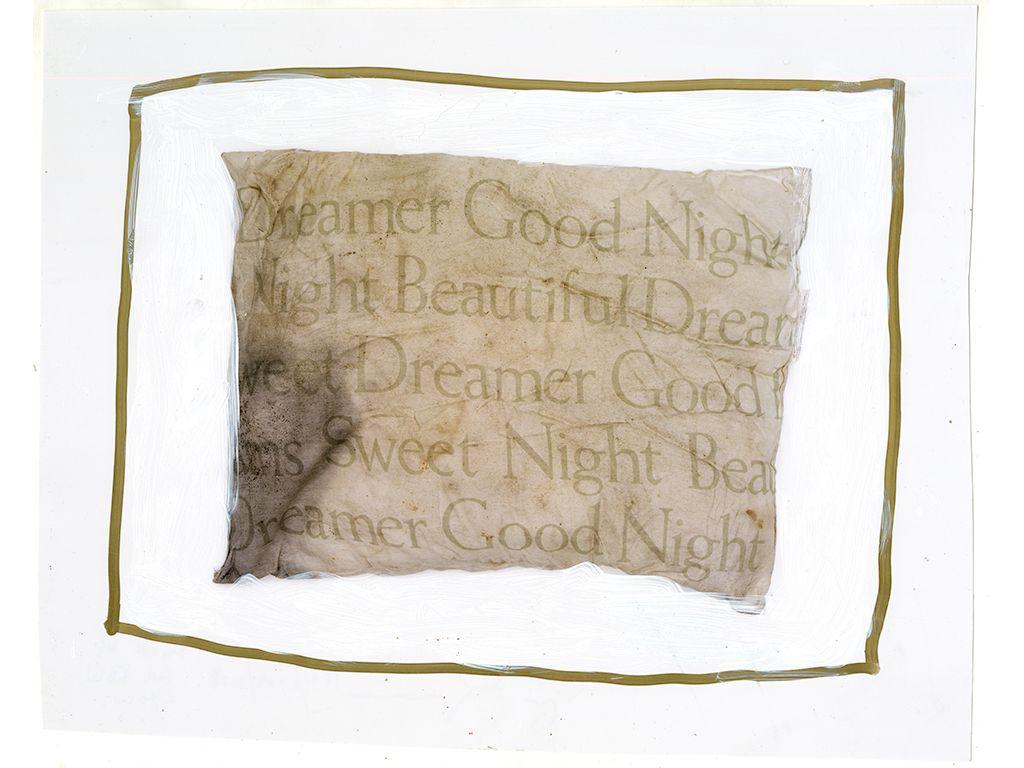 Dreamer Good Night
Night Beautiful Dream
weet Dreamer Good N
ms Sweet Night Beau
Dreamer Good Night